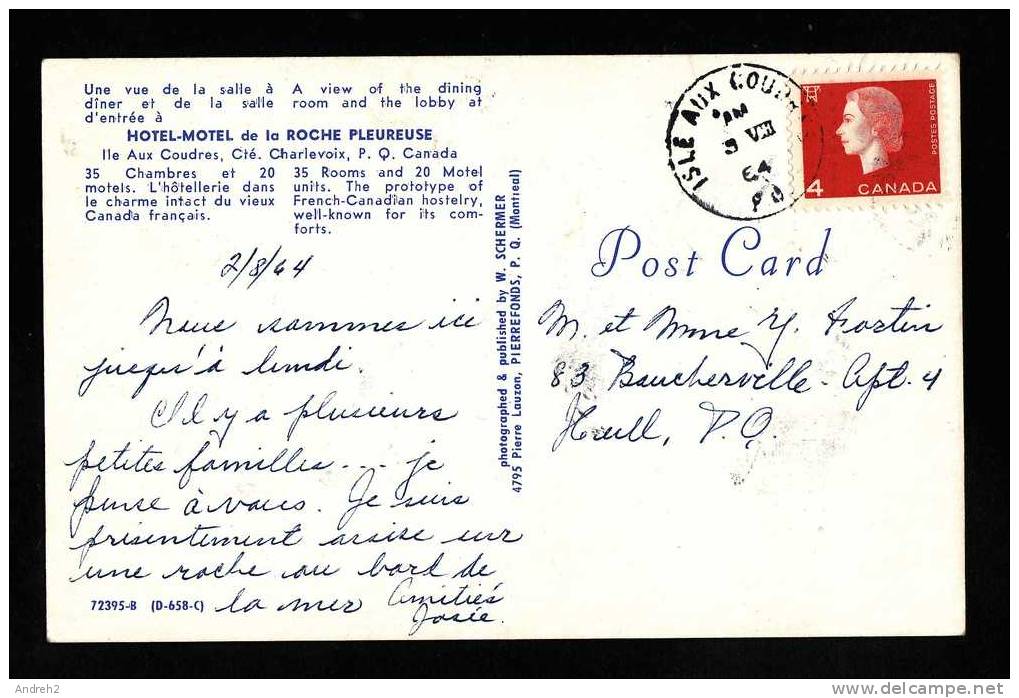 Une vue de la salle à
dîner et de la salle
d'entrée à
A view of the dining
room and the lobby at
HOTEL-MOTEL de la ROCHE PLEUREUSE
Ile Aux Coudres, Cté. Charlevoix, P. Q. Canada
35 Chambres et 20
motels. L'hôtellerie dans
le charme intact du vieux
Canada français.
35 Rooms and 20 Motel
units. The prototype of
French-Canadian hostelry,
well-known for its com-
forts.
2/8/64
Nous sommes ici
jusqu'à lundi.
Il y a plusieurs
petites familles... je
pense à vous. Je suis
présentement assise sur
une roche au bord de
la mer Amitiés
Josée.
72395-B (D-658-C)
photographed & published by W. SCHERMER
4795 Pierre Lauzon, PIERREFONDS, P. Q. (Montreal)
ISLE AUX COUDR
PM
VIII
64
P Q
POSTES POSTAGE
4 CANADA
Post Card
M. et Mme Y. Fortin
83 Boucherville - Apt. 4
Hull, P.Q.
Andreh2
delcampe.net